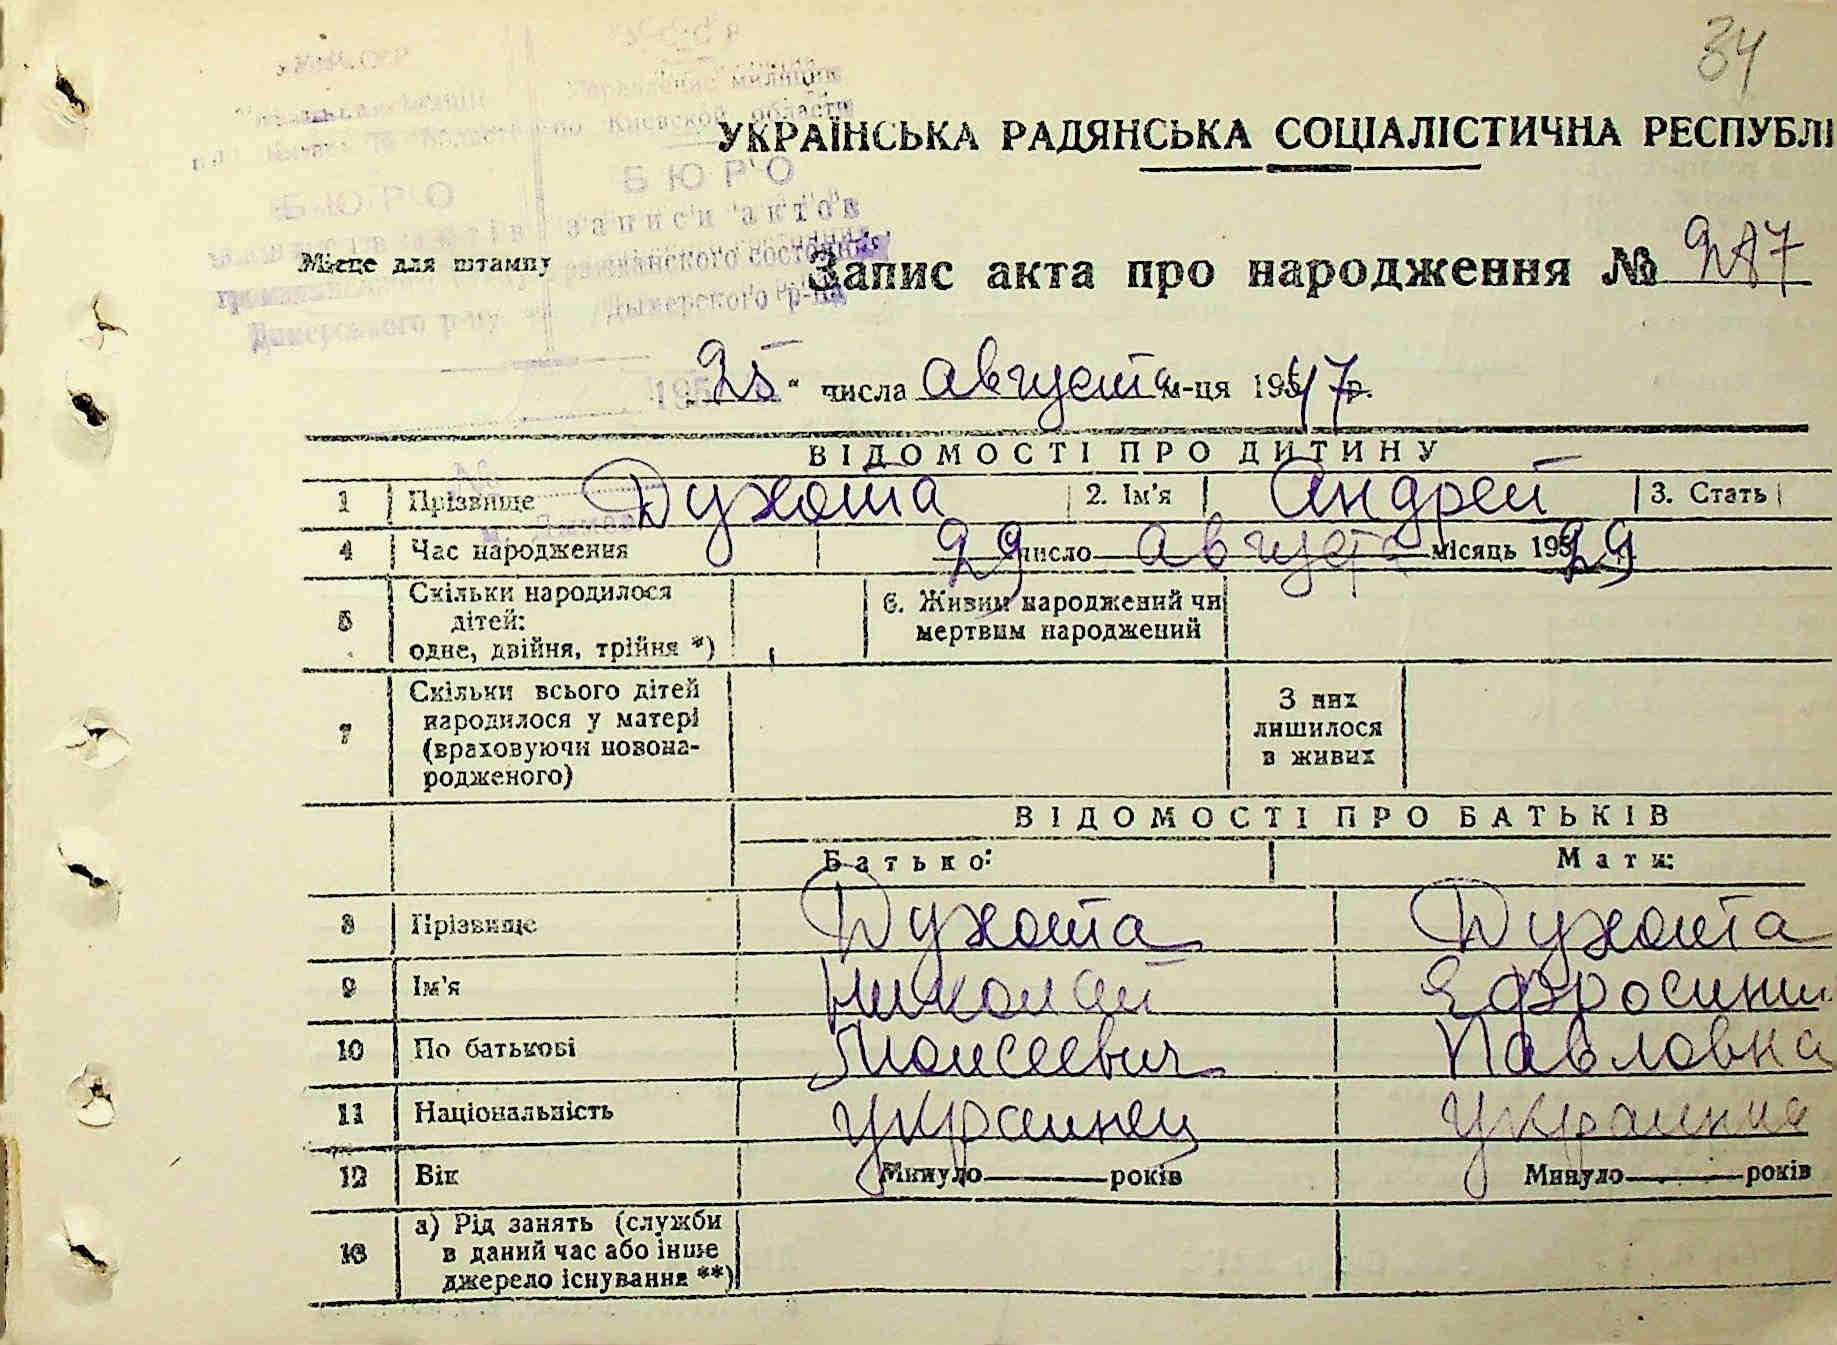 34
УКРАЇНСЬКА РАДЯНСЬКА СОЦІАЛІСТИЧНА РЕСПУБЛІ
Управление милиции
по Киевской области
БЮРО БЮРО
записи актов
гражданского состояния
Дымерського р-ну Дымерского р-на
Місце для штампу
Запис акта про народження № 287
„25" числа августа м-ця 1947 р.
195
№
ВІДОМОСТІ ПРО ДИТИНУ
1 Прізвище Духота 2. Ім'я Андрей 3. Стать
4 Час народження 29 число августа місяць 1929
5 Скільки народилося дітей: одне, двійня, трійня *) 6. Живим народжений чи мертвим народжений
7 Скільки всього дітей народилося у матері (враховуючи новонародженого) З них лишилося в живих
ВІДОМОСТІ ПРО БАТЬКІВ
Батько: Мати:
8 Прізвище Духота Духота
9 Ім'я Николай Ефросини
10 По батькові Моисеевич Павловна
11 Національність украинец украинка
12 Вік Минуло років Минуло років
13 а) Рід занять (служби в даний час або інше джерело існування **)